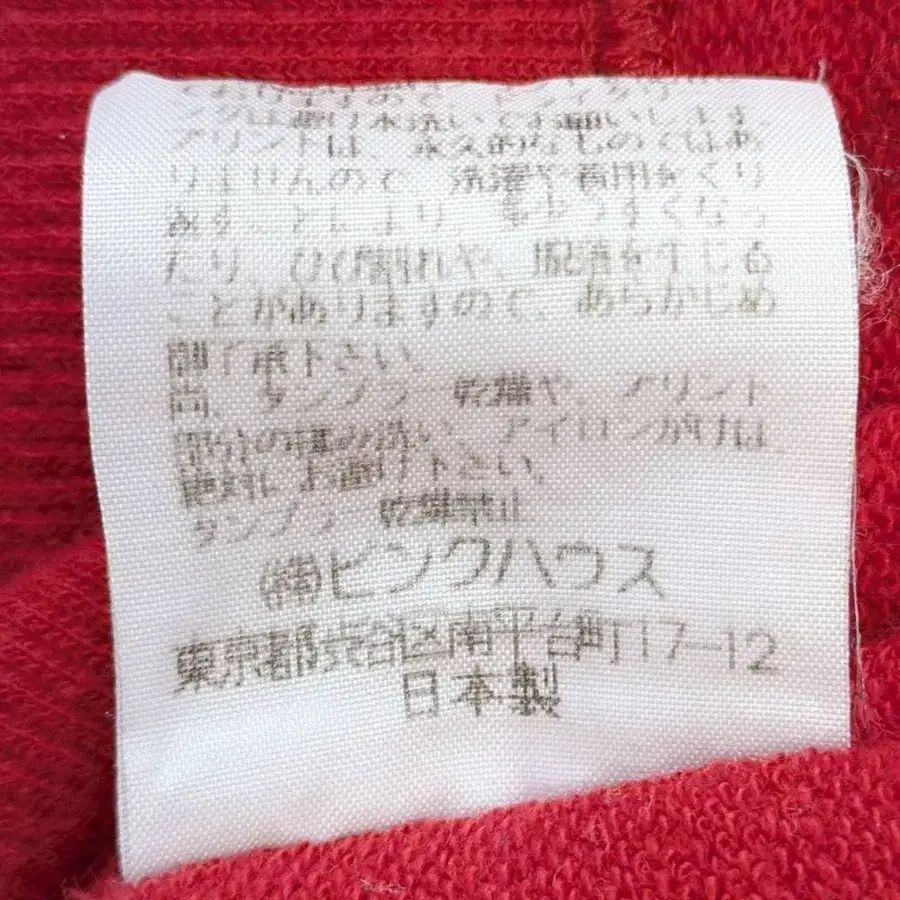 プリントは、永久的なものではあ
りませんので、洗濯や着用をくり
返すことにより、多少うすくなっ
たり、ひび割れや、脱落を生じる
ことがありますので、あらかじめ
御了承下さい。
尚、タンブラー乾燥や、プリント
部分の揉み洗い、アイロンがけは、
絶対にお避け下さい。
タンブラー乾燥禁止
㈱ピンクハウス
東京都渋谷区南平台町17-12
日本製